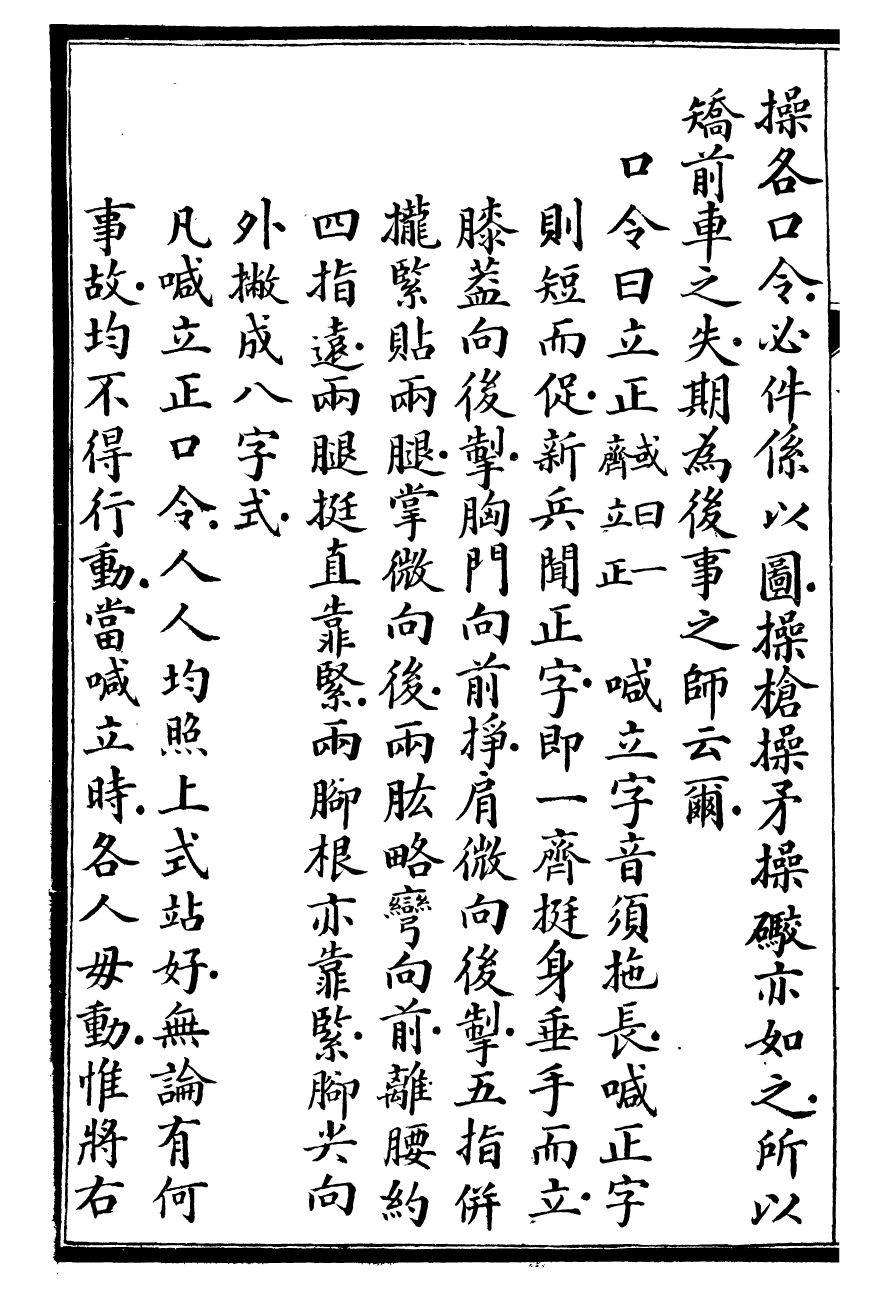 操各口令必件係以圖操槍操矛操礮亦如之所以
矯前車之失期為後事之師云爾
口令曰立正或曰一齊立正喊立字音須拖長喊正字
則短而促新兵聞正字即一齊挺身垂手而立
膝蓋向後掣胸門向前掙肩微向後掣五指併
攏緊貼兩腿掌微向後兩肱略彎向前離腰約
四指遠兩腿挺直靠緊兩腳根亦靠緊腳尖向
外撇成八字式
凡喊立正口令人人均照上式站好無論有何
事故均不得行動當喊立時各人毋動惟將右